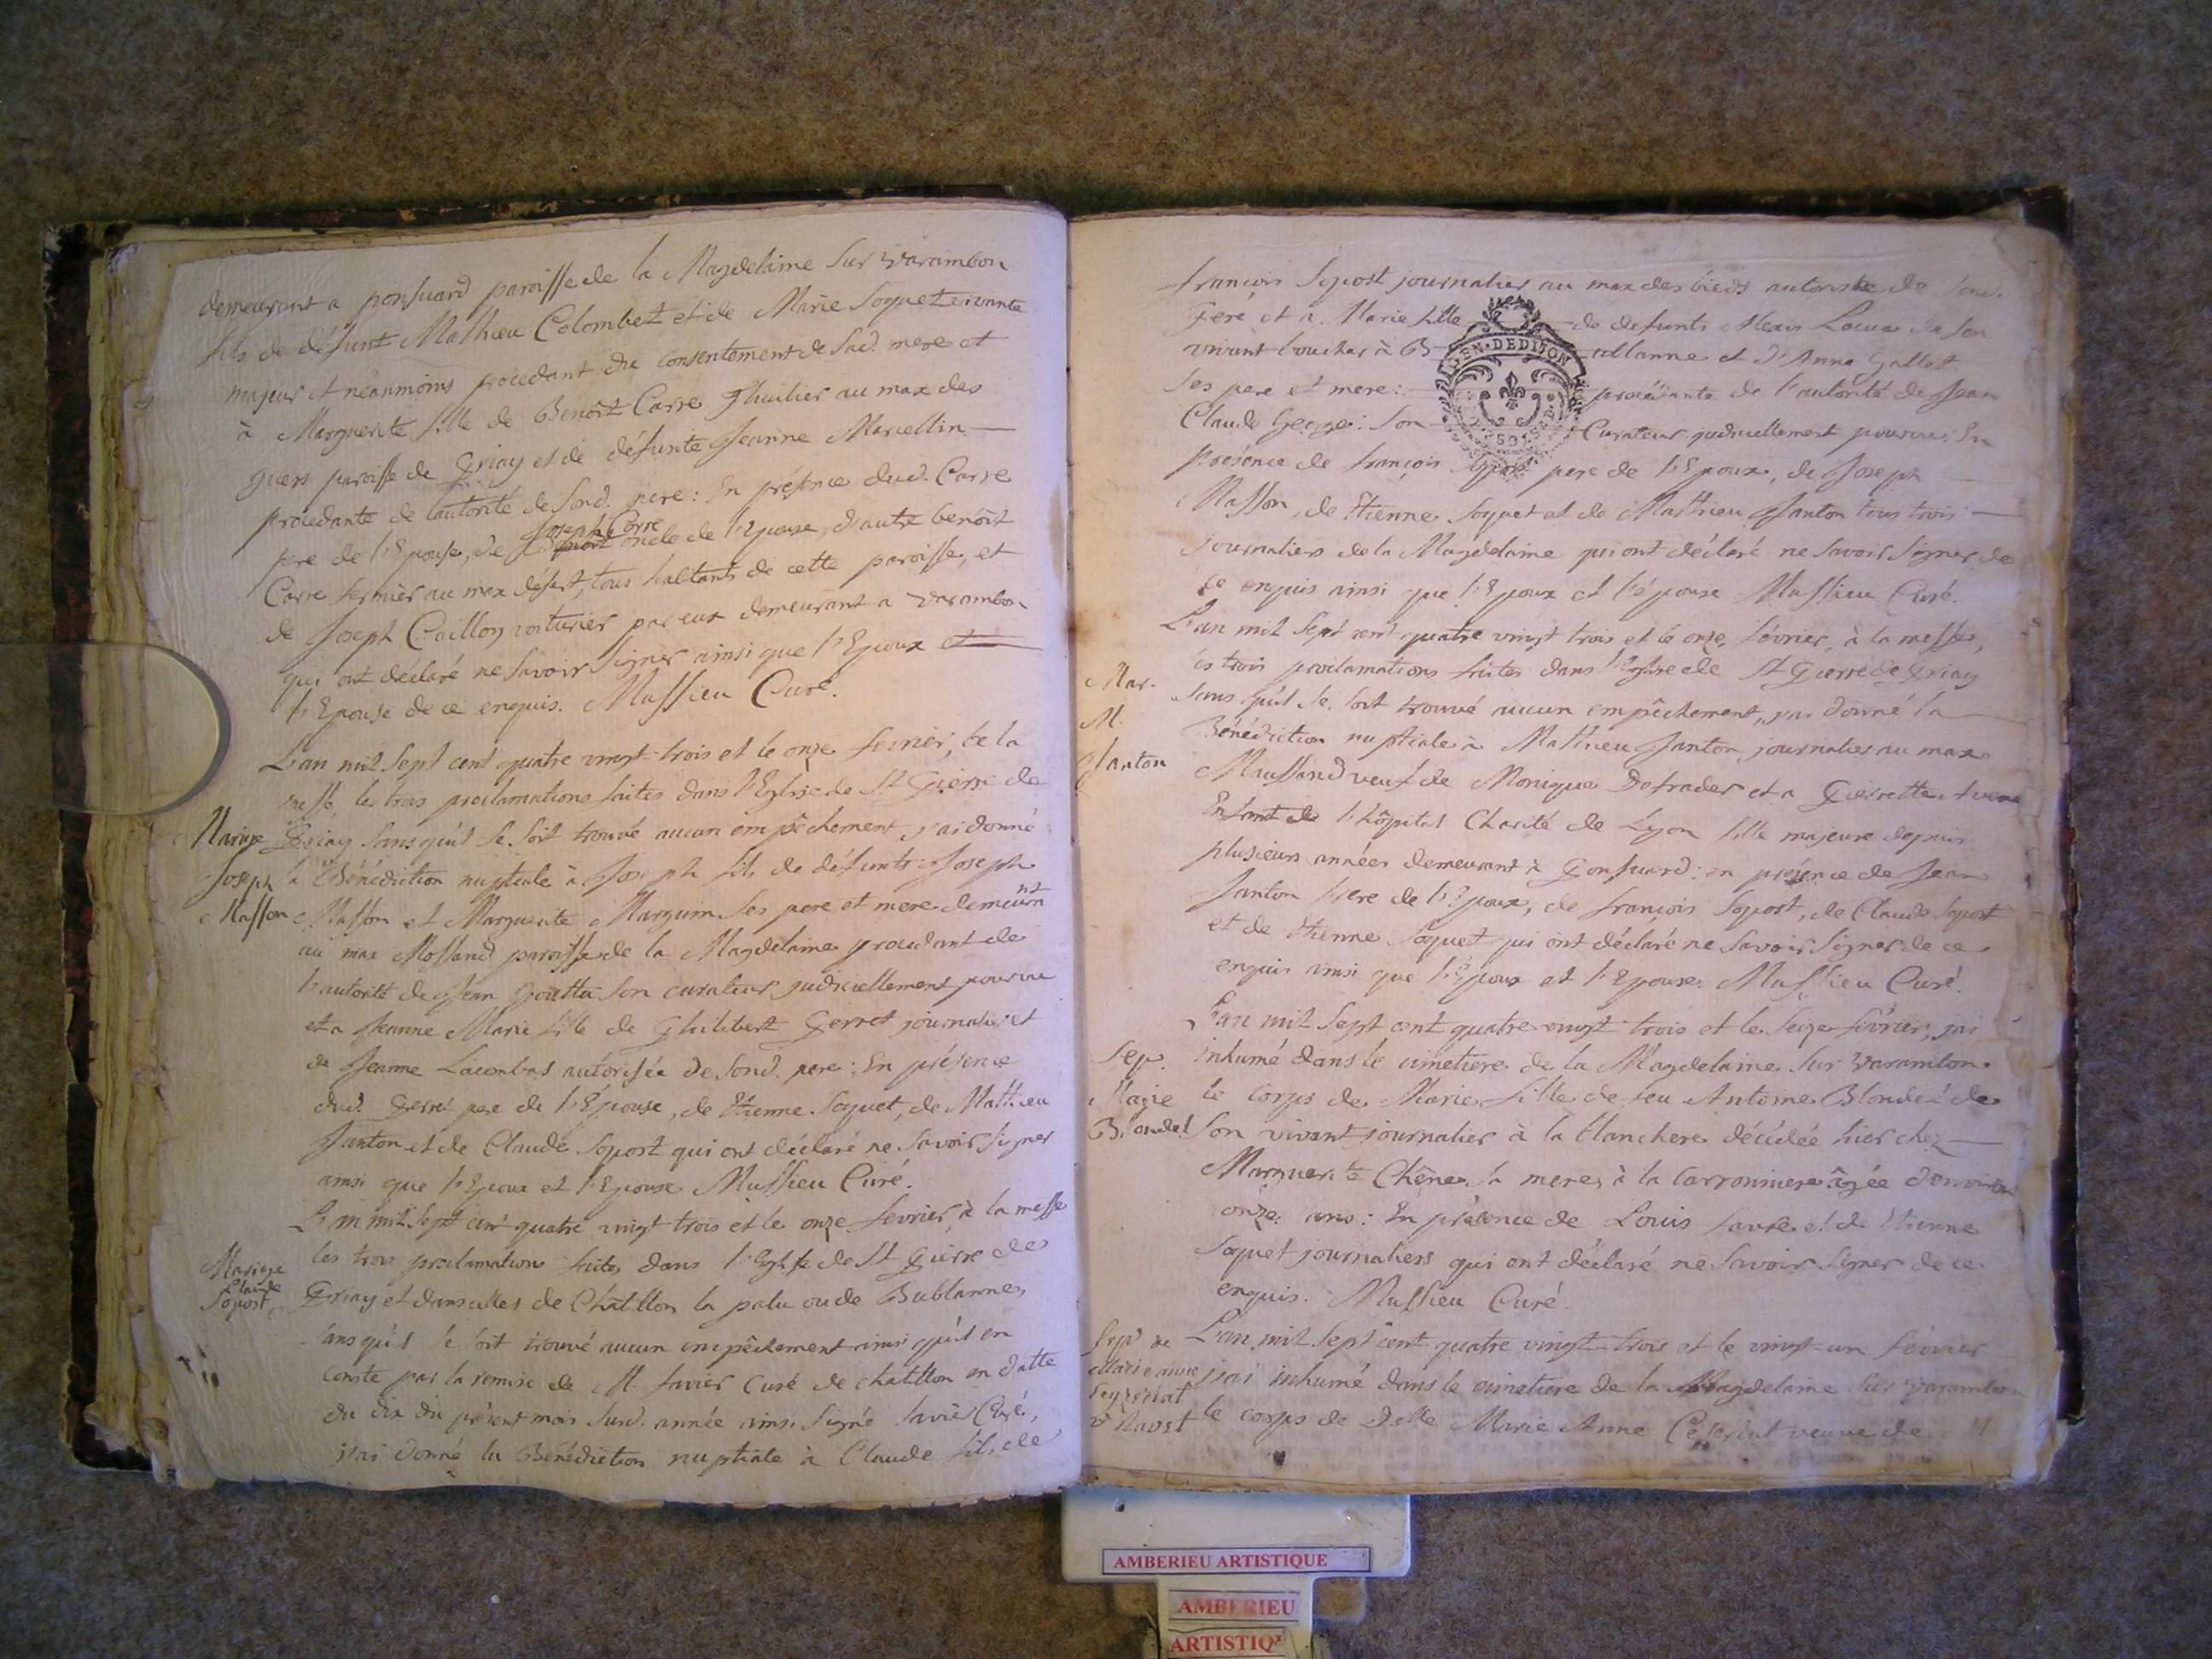 demeurant a ponsuard paroisse de la Magdelaine sur varambon
fils de défunt Mathieu Colombet et de Marie Soquet vivante
majeur et néanmoins procedant du consentement de sad. mere et
à Marguerite fille de Benoît Carre Thuilier au max des
guers paroisse de Priay et de défunte Jeanne Marcellin
procedante de l'autorité de sond. pere : En présence dud. Carre
pere de l'Epouse, de Joseph Carre oncle de l'Epouse, d'autre benoît
Carre fermier au mex désert, tous habitants de cette paroisse, et
de Joseph Caillon voiturier par eux demeurant a varambon
qui ont déclaré ne savoir signer ainsi que l'Epoux et
l'Epouse de ce enquis. Massieu Curé.
L'an mil sept cent quatre vingt-trois et le onze fevrier, à la
messe, les trois proclamations faites dans l'Eglise de St Pierre de
Mariage Priay sans qu'il se soit trouvé aucun empêchement j'ai donné
Joseph la Bénédiction nuptiale à Joseph fils de défunts Joseph
Masson Masson et Marguerite Marguin ses pere et mere demeurant
au max Mossand paroisse de la Magdelaine procedant de
l'autorité de Jean Goutta son curateur judiciellement pourvu
et a Jeanne Marie fille de Philibert Perret journalier et
de Jeanne Lacombes autorisée de sond. pere : En présence
dud. Perret pere de l'Epouse, de Etienne Soquet, de Mathieu
Janton et de Claude Sopost qui ont déclaré ne savoir signer
ainsi que l'Epoux et l'Epouse Massieu Curé.
L'an mil sept cent quatre vingt trois et le onze fevrier, à la messe
les trois proclamations faites dans l'Eglise de St Pierre de
Mariage
Claude
Sopost
Priay et dans celles de Châtillon la palu ou de Bublanne,
sans qu'il se soit trouvé aucun empêchement ainsi qu'il en
conste par la remise de M. Savier Curé de chatillon en datte
du dix du présent mois susd. année ainsi signé Savier Curé,
j'ai donné la Bénédiction nuptiale à Claude fils de
françois Sopost journalier au max des bieds autorisé de sond.
Pere et a Marie fille de defunts Alexis Louva de son
vivant boucher à B ublanne et d'Anne Gallet
ses pere et mere : procédante de l'autorité de Jean
GEN·DEDIJON
Claude George : son Curateur judiciellement pourvu : En
présence de françois Sopost pere de l'Epoux, de Joseph
Masson, de Etienne Soquet et de Mathieu Janton tous trois
journaliers de la Magdelaine qui ont déclaré ne savoir signer de
ce enquis ainsi que l'Epoux et l'épouse Massieu Curé.
L'an mil sept cent quatre vingt trois et le onze fevrier, à la messe,
les trois proclamations faites dans l'Eglise de St Pierre de Priay
Mar.
M.
Janton
sans qu'il se soit trouvé aucun empêchement, j'ai donné la
Bénédiction nuptiale à Mathieu Janton, journalier au max
Maussand veuf de Monique Detrader et a Pierrette
Enfant de l'hôpital Charité de Lyon fille majeure depuis
plusieurs années demeurant à Ponsuard : en présence de Jean
Janton frere de l'Epoux, de françois Sopost, de Claude Sopost
et de Etienne Soquet qui ont déclaré ne savoir signer de ce
enquis ainsi que l'Epoux et l'Epouse. Massieu Curé.
L'an mil sept cent quatre vingt trois et le seize février, j'ai
Sep. inhumé dans le cimetiere de la Magdelaine sur varambon
Marie le corps de Marie fille de feu Antoine Blondel de
Blondel son vivant journalier à la blanchere décédée hier chez
Marguerite Chêne sa mere, à la Carronniere âgée d'environ
onze ans : En présence de Louis favre et de Etienne
Soquet journaliers qui ont déclaré ne savoir signer de ce
enquis. Massieu Curé.
Sep. de L'an mil sept cent quatre vingt-trois et le vingt-un février
Marie anne j'ai inhumé dans le cimetiere de la Magdelaine sur varambon
Ceyzeriat
ve Ravet le corps de Delle Marie Anne Ceseriat veuve de M
AMBERIEU ARTISTIQUE
AMBERIEU
ARTISTIQ